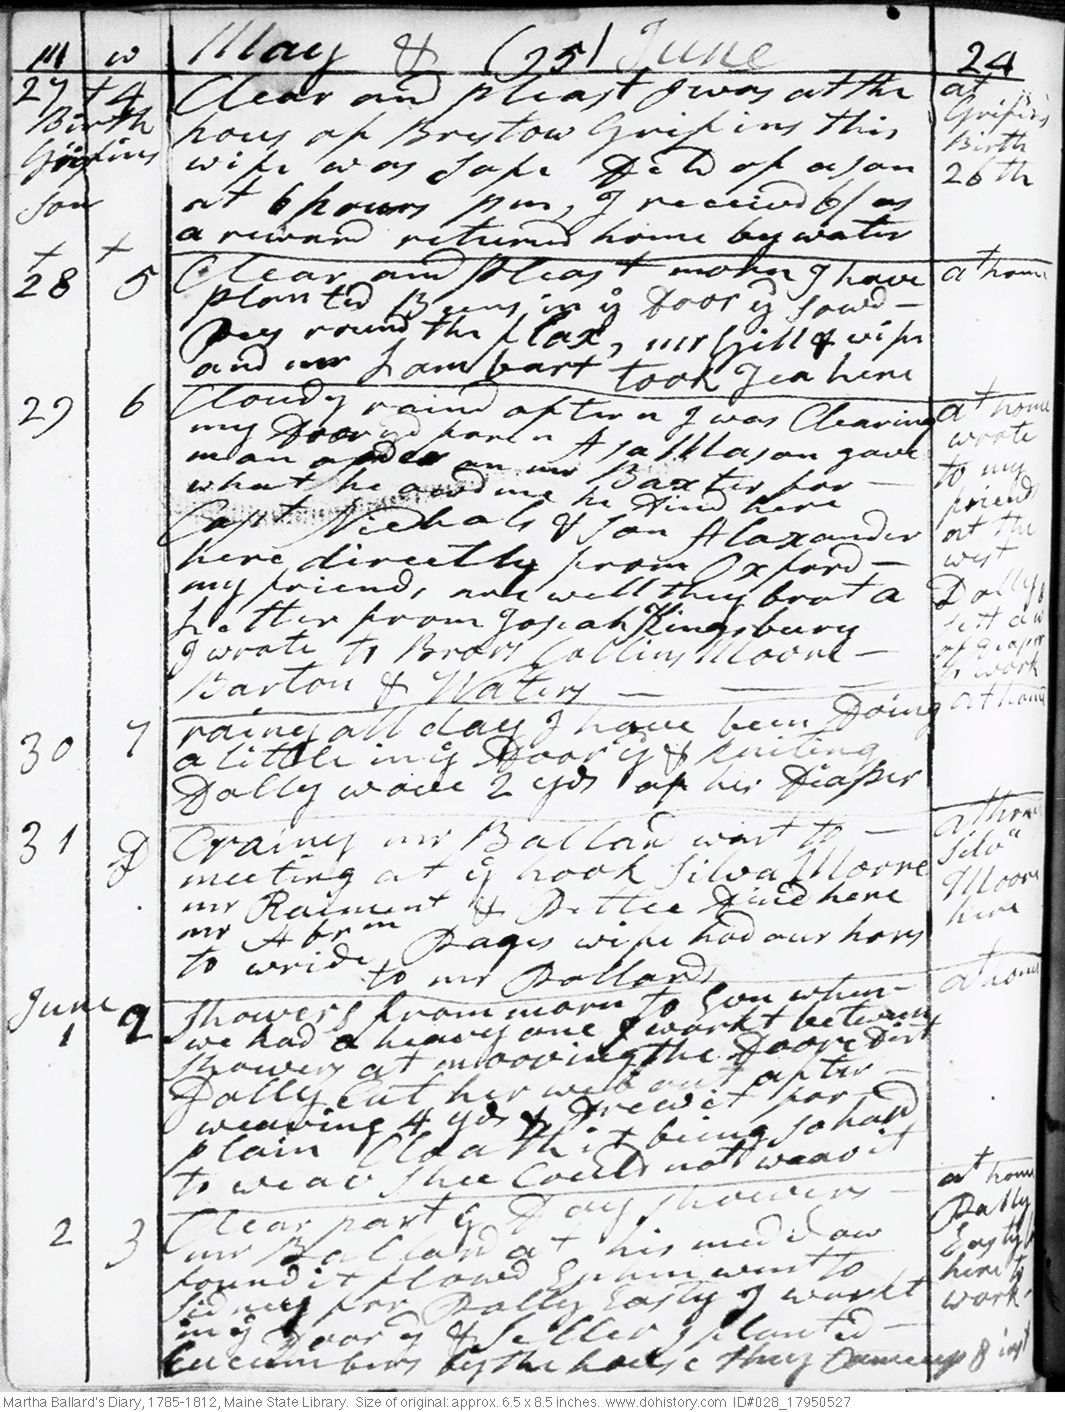 m w May & (1795) June 24
27 4 Clear and pleast I was at the at
Birth hous of Bristow Grifins this Grifins
Grifins wife was Safe Deld of a son Birth
Son at 6 hours pm, I received 6/ as 26th
a reward returned home by water
28 5 Clear and pleast morn I have at home
planted Beens in ye Door yd sowd –
Pees round the flax, mr Gill & wife
and mr Lambart took Tea here
29 6 Cloudy raind aftern I was Clearing at home
my Door yd foren Asa Mason gave wrote
man order on mr Baxter for – to my
what he owd me he Dind here friends
Capt Nichols & son Alaxander at the
here directly from Oxford – west
my friends are well they brot a Dolly
Letter from Josiah Kingsbury
I wrote to Brors Collins Moore –
Barton & Waters – to work
30 7 rainy all day I have been Doing at home
a little in ye Door yd & kniting
Dolly wove 2 yds of her Diaper
31 D rainy mr Ballard went to – at home
meeting at ye hook Silva Moore Silva
mr Raiment & Pettee Dind here Moore
mr Abrm Pages wife had our hors here
to wride to mr Pollards
June 1 2 Showers from morn to Evn when at home
we had a heavy one I workt between
showers at mooving the Doore Dirt
Dolly Cut her web out after –
weaving 4 yds & Drew it for
plain Cloath it being so hard
to weav shee Could nott weav it
2 3 Clear part ye Day showers – at home
mr Ballard at his meddow Polly
found it flowd Ephm went to Easty
Sidney for Polly Easty I workt here to
in ye Door yd & Seller I planted – work
Cucumbers by the house they Came up 8 inst